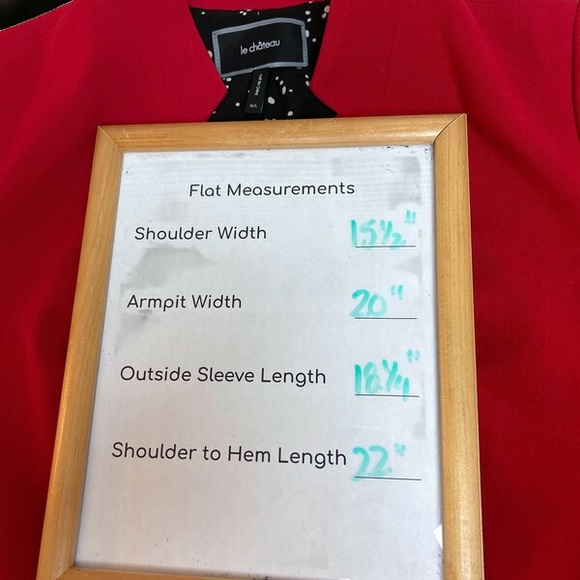 le château
Flat Measurements
Shoulder Width 15½"
Armpit Width 20"
Outside Sleeve Length 18¼"
Shoulder to Hem Length 22"